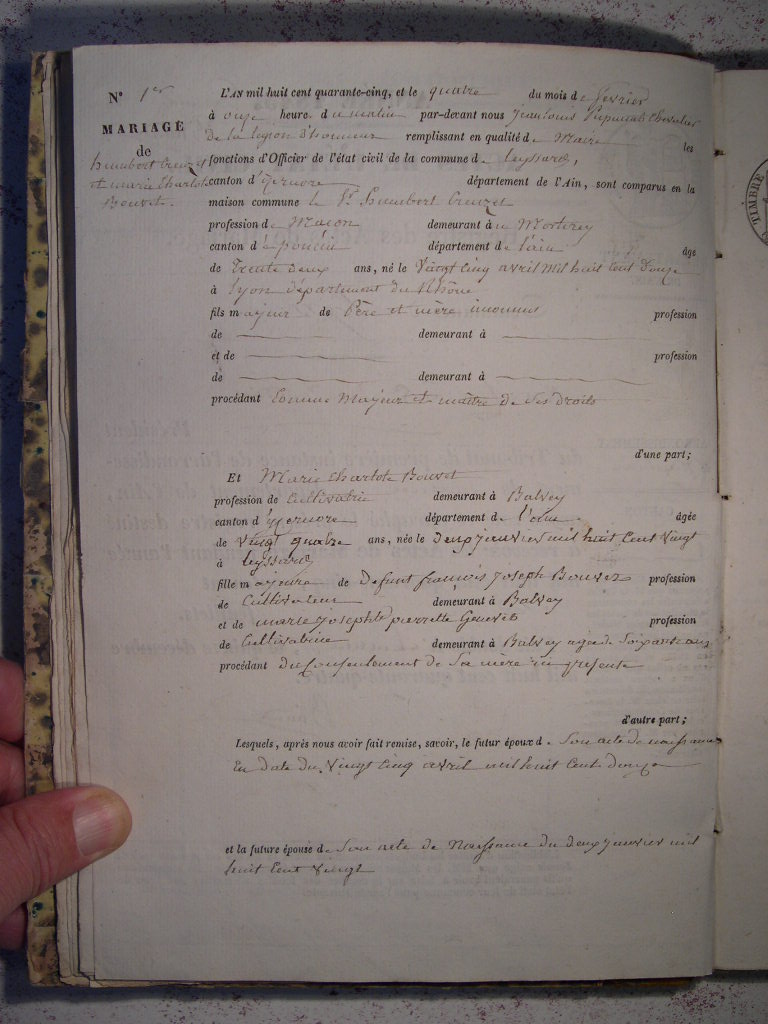 N° 1er
MARIAGE
de
humbert Creuzet
et marie Charlote
Bouvet.
L'AN mil huit cent quarante-cinq, et le quatre du mois de fevrier
à onze heure du matin par-devant nous Jean louis Chevalier
de la legion d'honneur remplissant en qualité de Maire les
fonctions d'Officier de l'état civil de la commune de leyssard,
canton d'izernore département de l'Ain, sont comparus en la
maison commune le Sr humbert Creuzet
profession de Maçon demeurant à Mortarey
canton de poncin département de l'ain âgé
de trente deux ans, né le Vingt cinq avril Mil huit Cent Douze
à lyon département du Rhône
fils majeur de Père et mère inconnus profession
de demeurant à
et de profession
de demeurant à
procédant Comme Majeur et maître de Ses Droits
d'une part;
Et Marie Charlote Bouvet
profession de Cultivatrice demeurant à Balvey
canton d'izernore département de l'ain âgée
de Vingt quatre ans, née le Deux janvier mil huit Cent Vingt
à leyssard
fille majeure de Defunt françois Joseph Bouvet profession
de Cultivateur demeurant à Balvey
et de marie Josephte pierrette Genevet profession
de Cultivatrice demeurant à Balvey agée de Soixante ans
procédant du Consentement de Sa mère ici présente
d'autre part;
Lesquels, après nous avoir fait remise, savoir, le futur époux de Son acte de naissance
En Date du Vingt Cinq avril mil huit Cent Douze
et la future épouse de Son acte de Naissance du deux janvier mil
huit Cent Vingt
TIMBRE